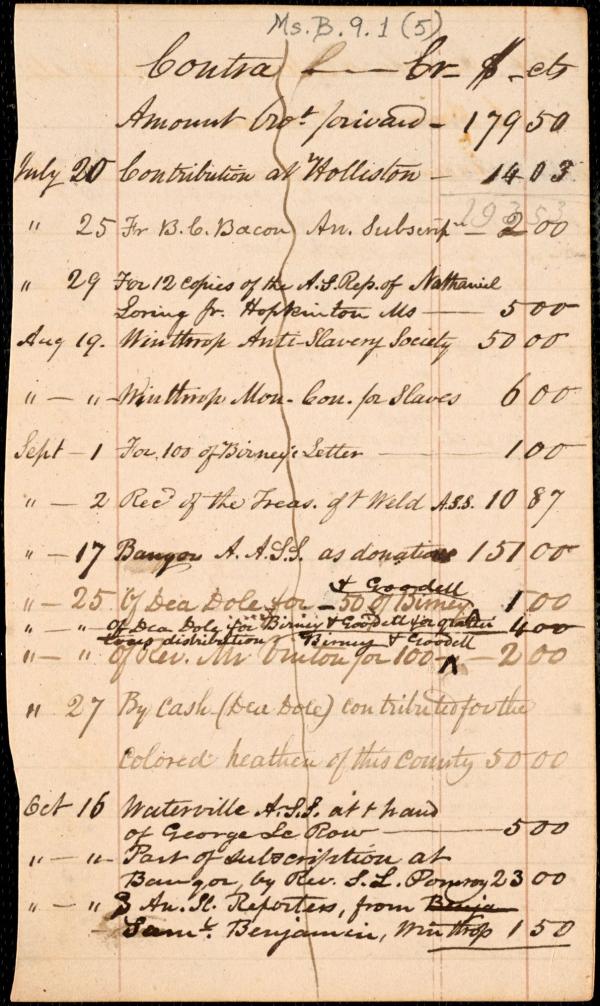 Ms. B. 9. 1 (5)
Contra — Cr - $ - cts
Amount bro.t forward - 179 50
July 20 Contribution at Holliston - 14 03
193 53
" 25 Fr B. C. Bacon An. Subscrip.n - 2 00
" 29 For 12 copies of the A. S. Rep. of Nathaniel
Loring Jr. Hopkinton Ms — 5 00
Aug 19. Winthrop Anti-Slavery Society 50 00
" - " - Winthrop Mon. Con. for Slaves 6 00
Sept - 1 For 100 of Birney's Letter — 1 00
" - 2 Rec.d of the Treas. of Weld A.S.S. 10 87
" - 17 Bangor A. A.S.S. as donation 151 00
& Goodell
" - 25 Of Dea Dole for - 50 of Birney 1 00
" " of Dea Dole for Birney & Goodell for 4 00
distribution Birney & Goodell
" - " of Rev. Mr Vinton for 100 ^ - 2 00
" 27 By Cash (Dea Dole) contributed for the
colored heathen of this County 50 00
Oct 16 Waterville A.S.S. at t hand
of George Le Row — 5 00
" - " - Part of subscription at
Bangor, by Rev. S. L. Pomroy 23 00
" - " 3 An. Sl. Reporters, from Benja
- Sam.l Benjamin, Winthrop 1 50